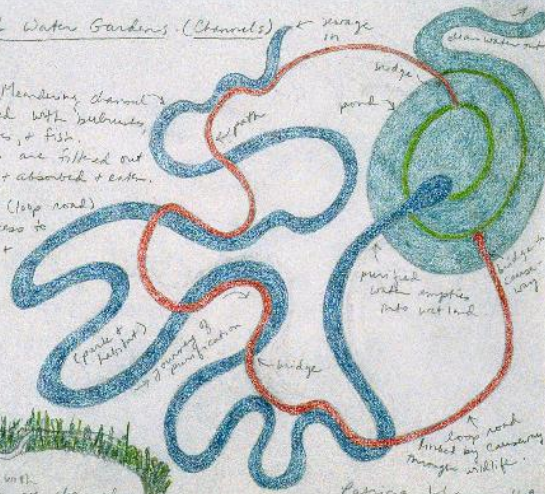 Water Gardens. (Channels)
sewage
in
clean water out
Meandering channel
bridge
pond
with bulrushes,
+ fish.
path
are filtered out
+ absorbed + eaten.
(loop road)
to
+
purified
water empties
into wetland
bridge
cause
way
(park +
habitat)
journey of
purification
bridge
loop road
linked by causeway
through wildlife.
with